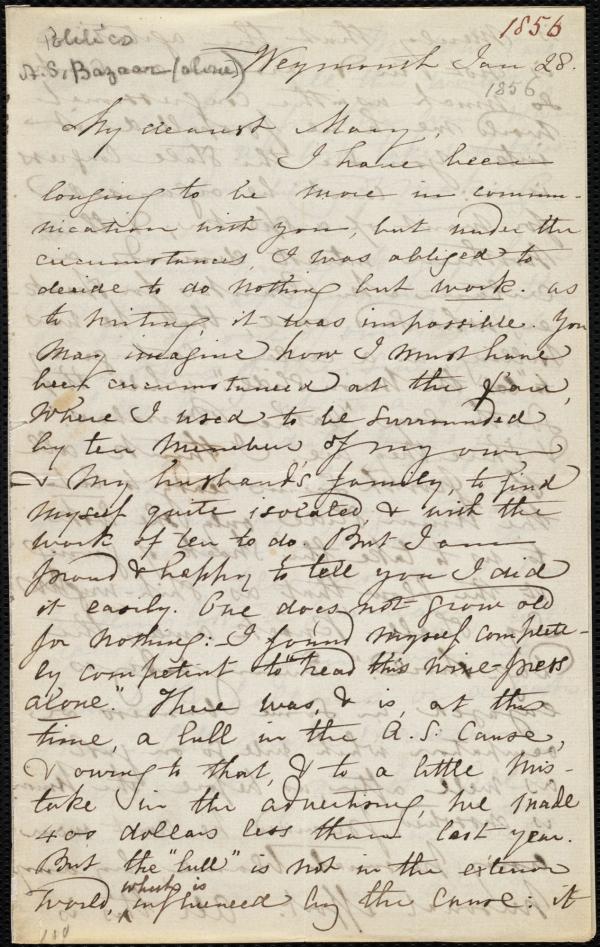 1856
Politics
A. S. Bazaar (alone)
Weymouth Jan 28.
1856
My dearest Mary,
I have been
longing to be more in commu-
nication with you, but under the
circumstances, I was obliged to
decide to do nothing but work. as
to writing, it was impossible. You
may imagine how I must have
been circumstanced at the Fair,
where I used to be surrounded
by ten members of my own
& my husband's family, to find
myself quite isolated, & with the
work of ten to do. But I am
proud & happy to tell you I did
it easily. One does not grow old
for nothing: I found myself complete-
ly competent to "tread this wine-press
alone." There was, & is, at this
time, a lull in the A. S. Cause,
& owing to that, & to a little mis-
take in the advertising, we made
400 dollars less than last year.
But the "lull" is not in the exterior
world, which is influenced by the cause: it